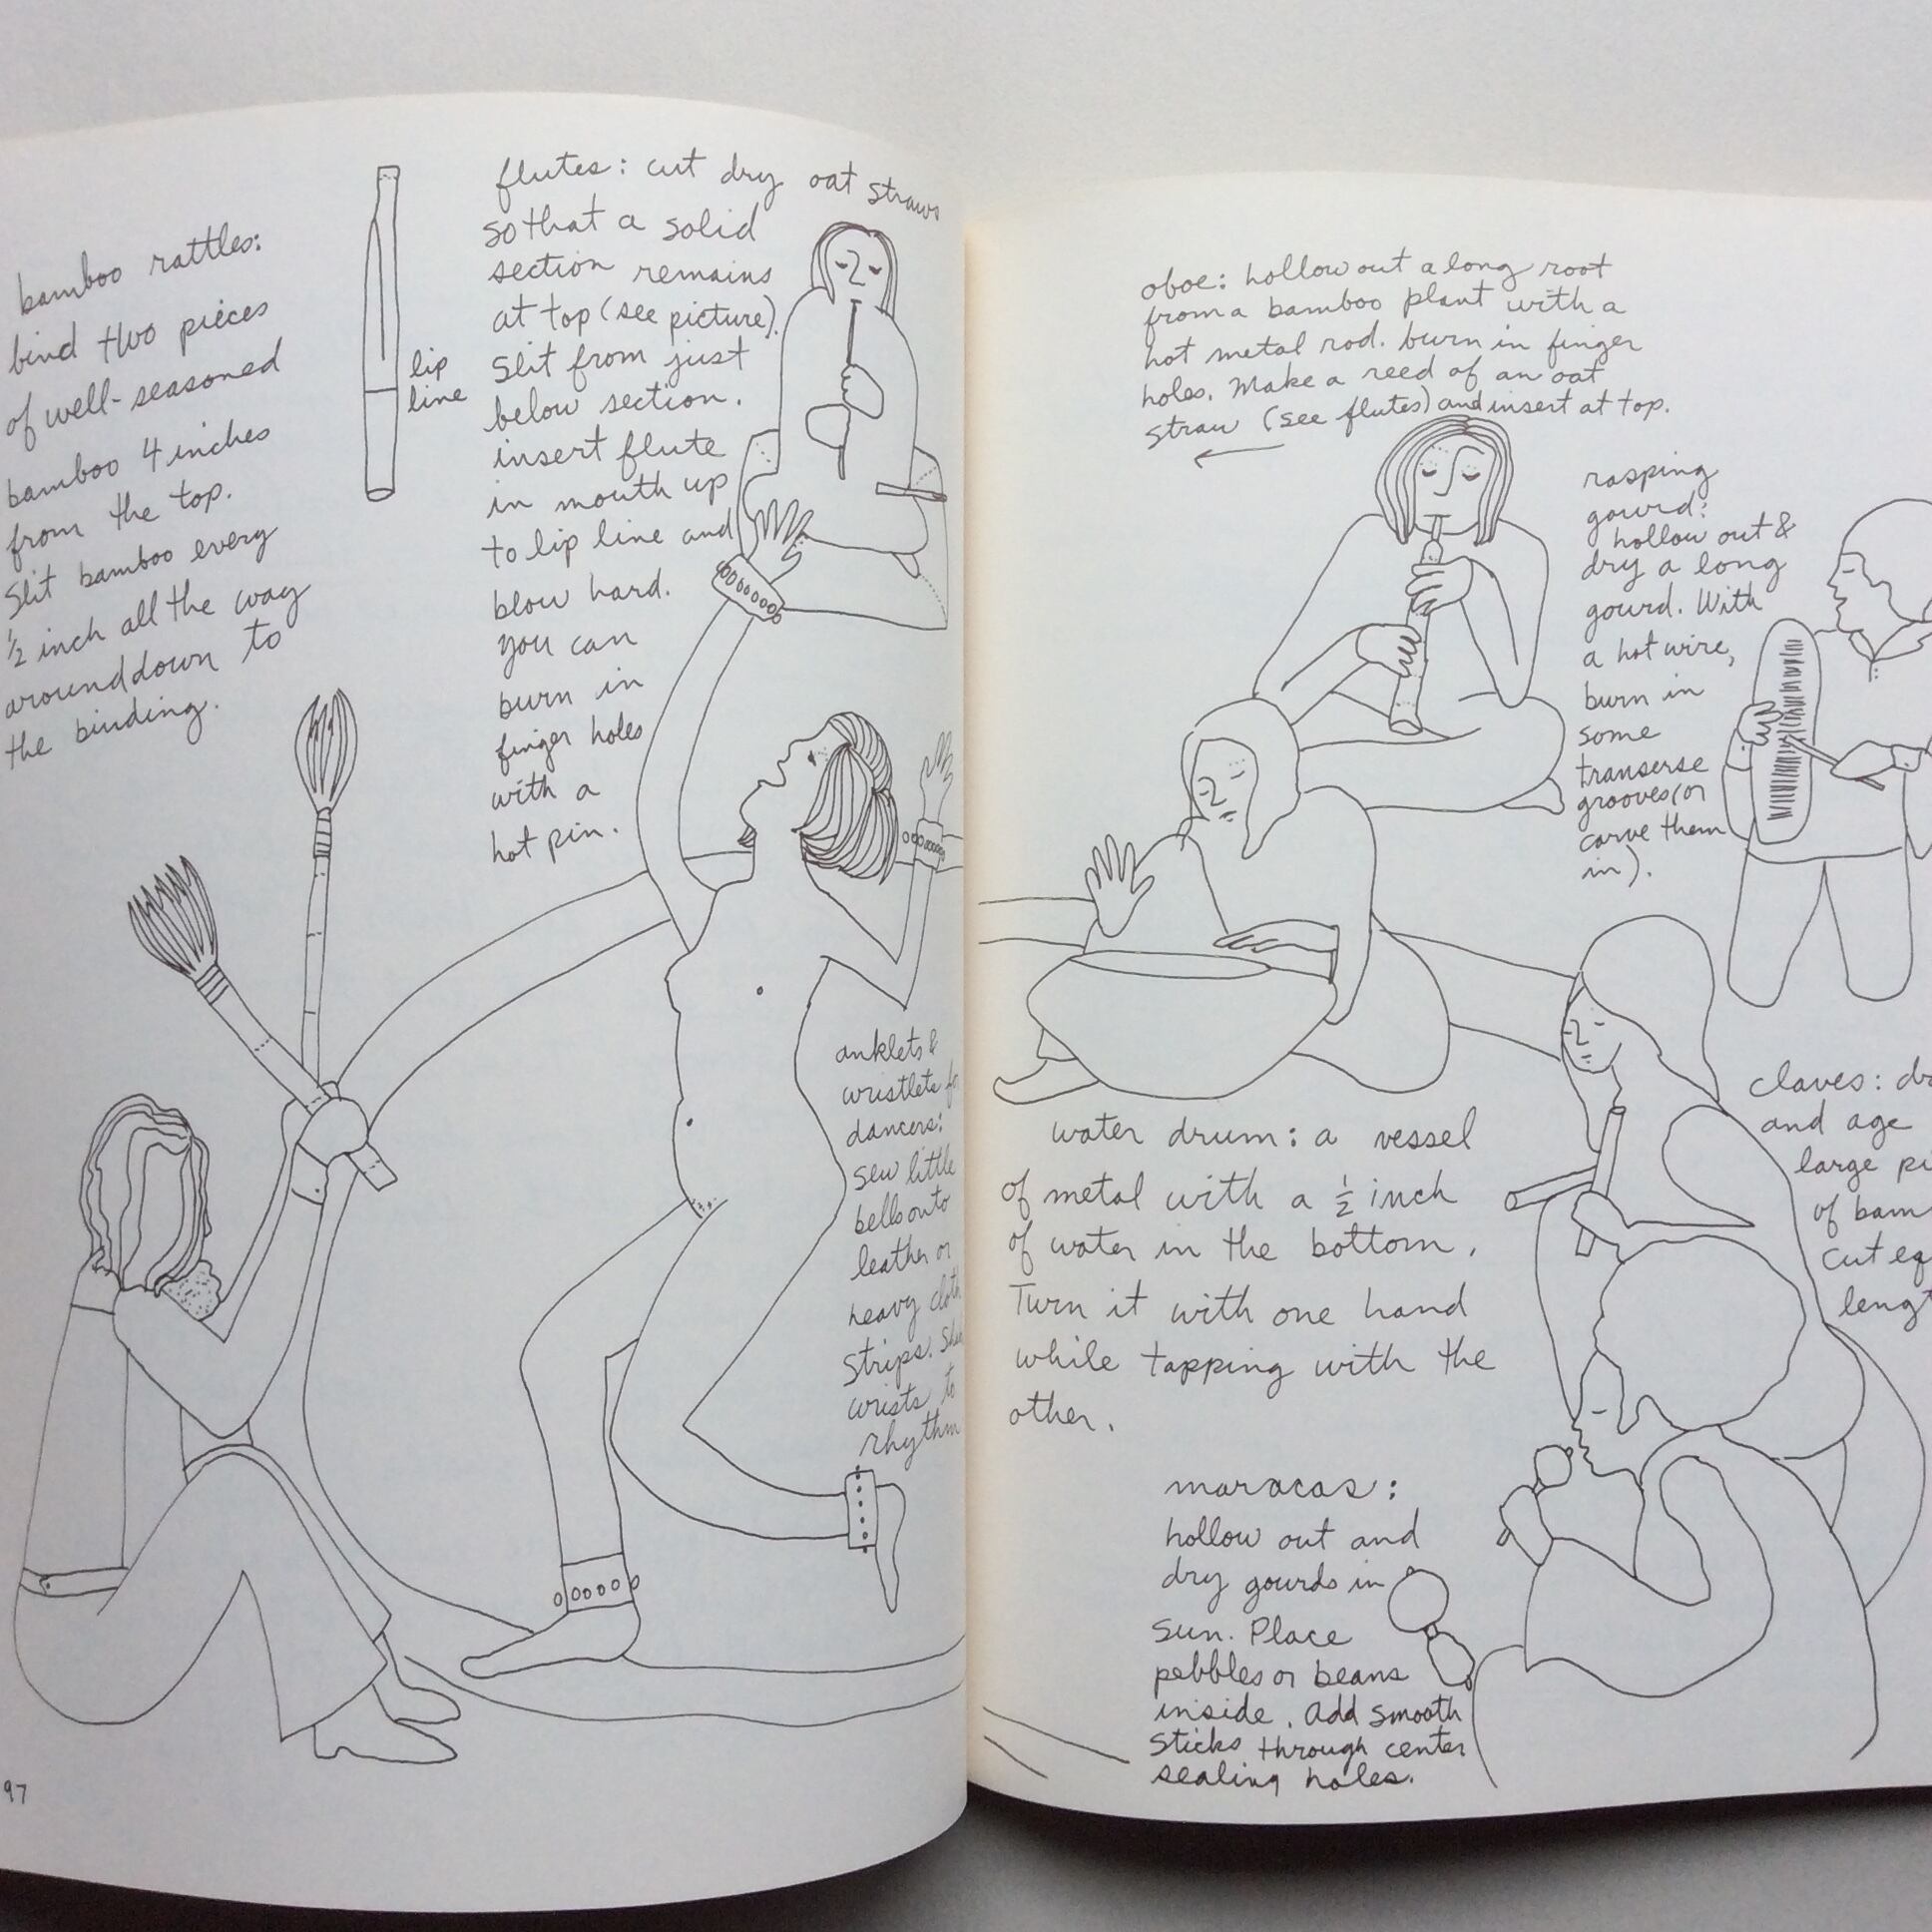 bamboo rattles:
bind two pieces
of well-seasoned
bamboo 4 inches
from the top.
Slit bamboo every
½ inch all the way
around down to
the binding.
lip
line
flutes: cut dry oat straws
so that a solid
section remains
at top (see picture).
Slit from just
below section.
insert flute
in mouth up
to lip line and
blow hard.
you can
burn in
finger holes
with a
hot pin.
anklets &
wristlets
dancers:
sew little
bells onto
leather or
heavy cloth
strips.
wrists to
rhythm
97
oboe: hollow out a long root
from a bamboo plant with a
hot metal rod. burn in finger
holes. Make a reed of an oat
straw (see flutes) and insert at top.
rasping
gourd:
hollow out &
dry a long
gourd. With
a hot wire,
burn in
some
transerse
grooves (or
carve them
in).
claves:
and age
large
of
cut
water drum: a vessel
of metal with a ½ inch
of water in the bottom.
Turn it with one hand
while tapping with the
other.
maracas:
hollow out and
dry gourds in
sun. Place
pebbles or beans
inside. Add smooth
sticks through center
sealing holes.